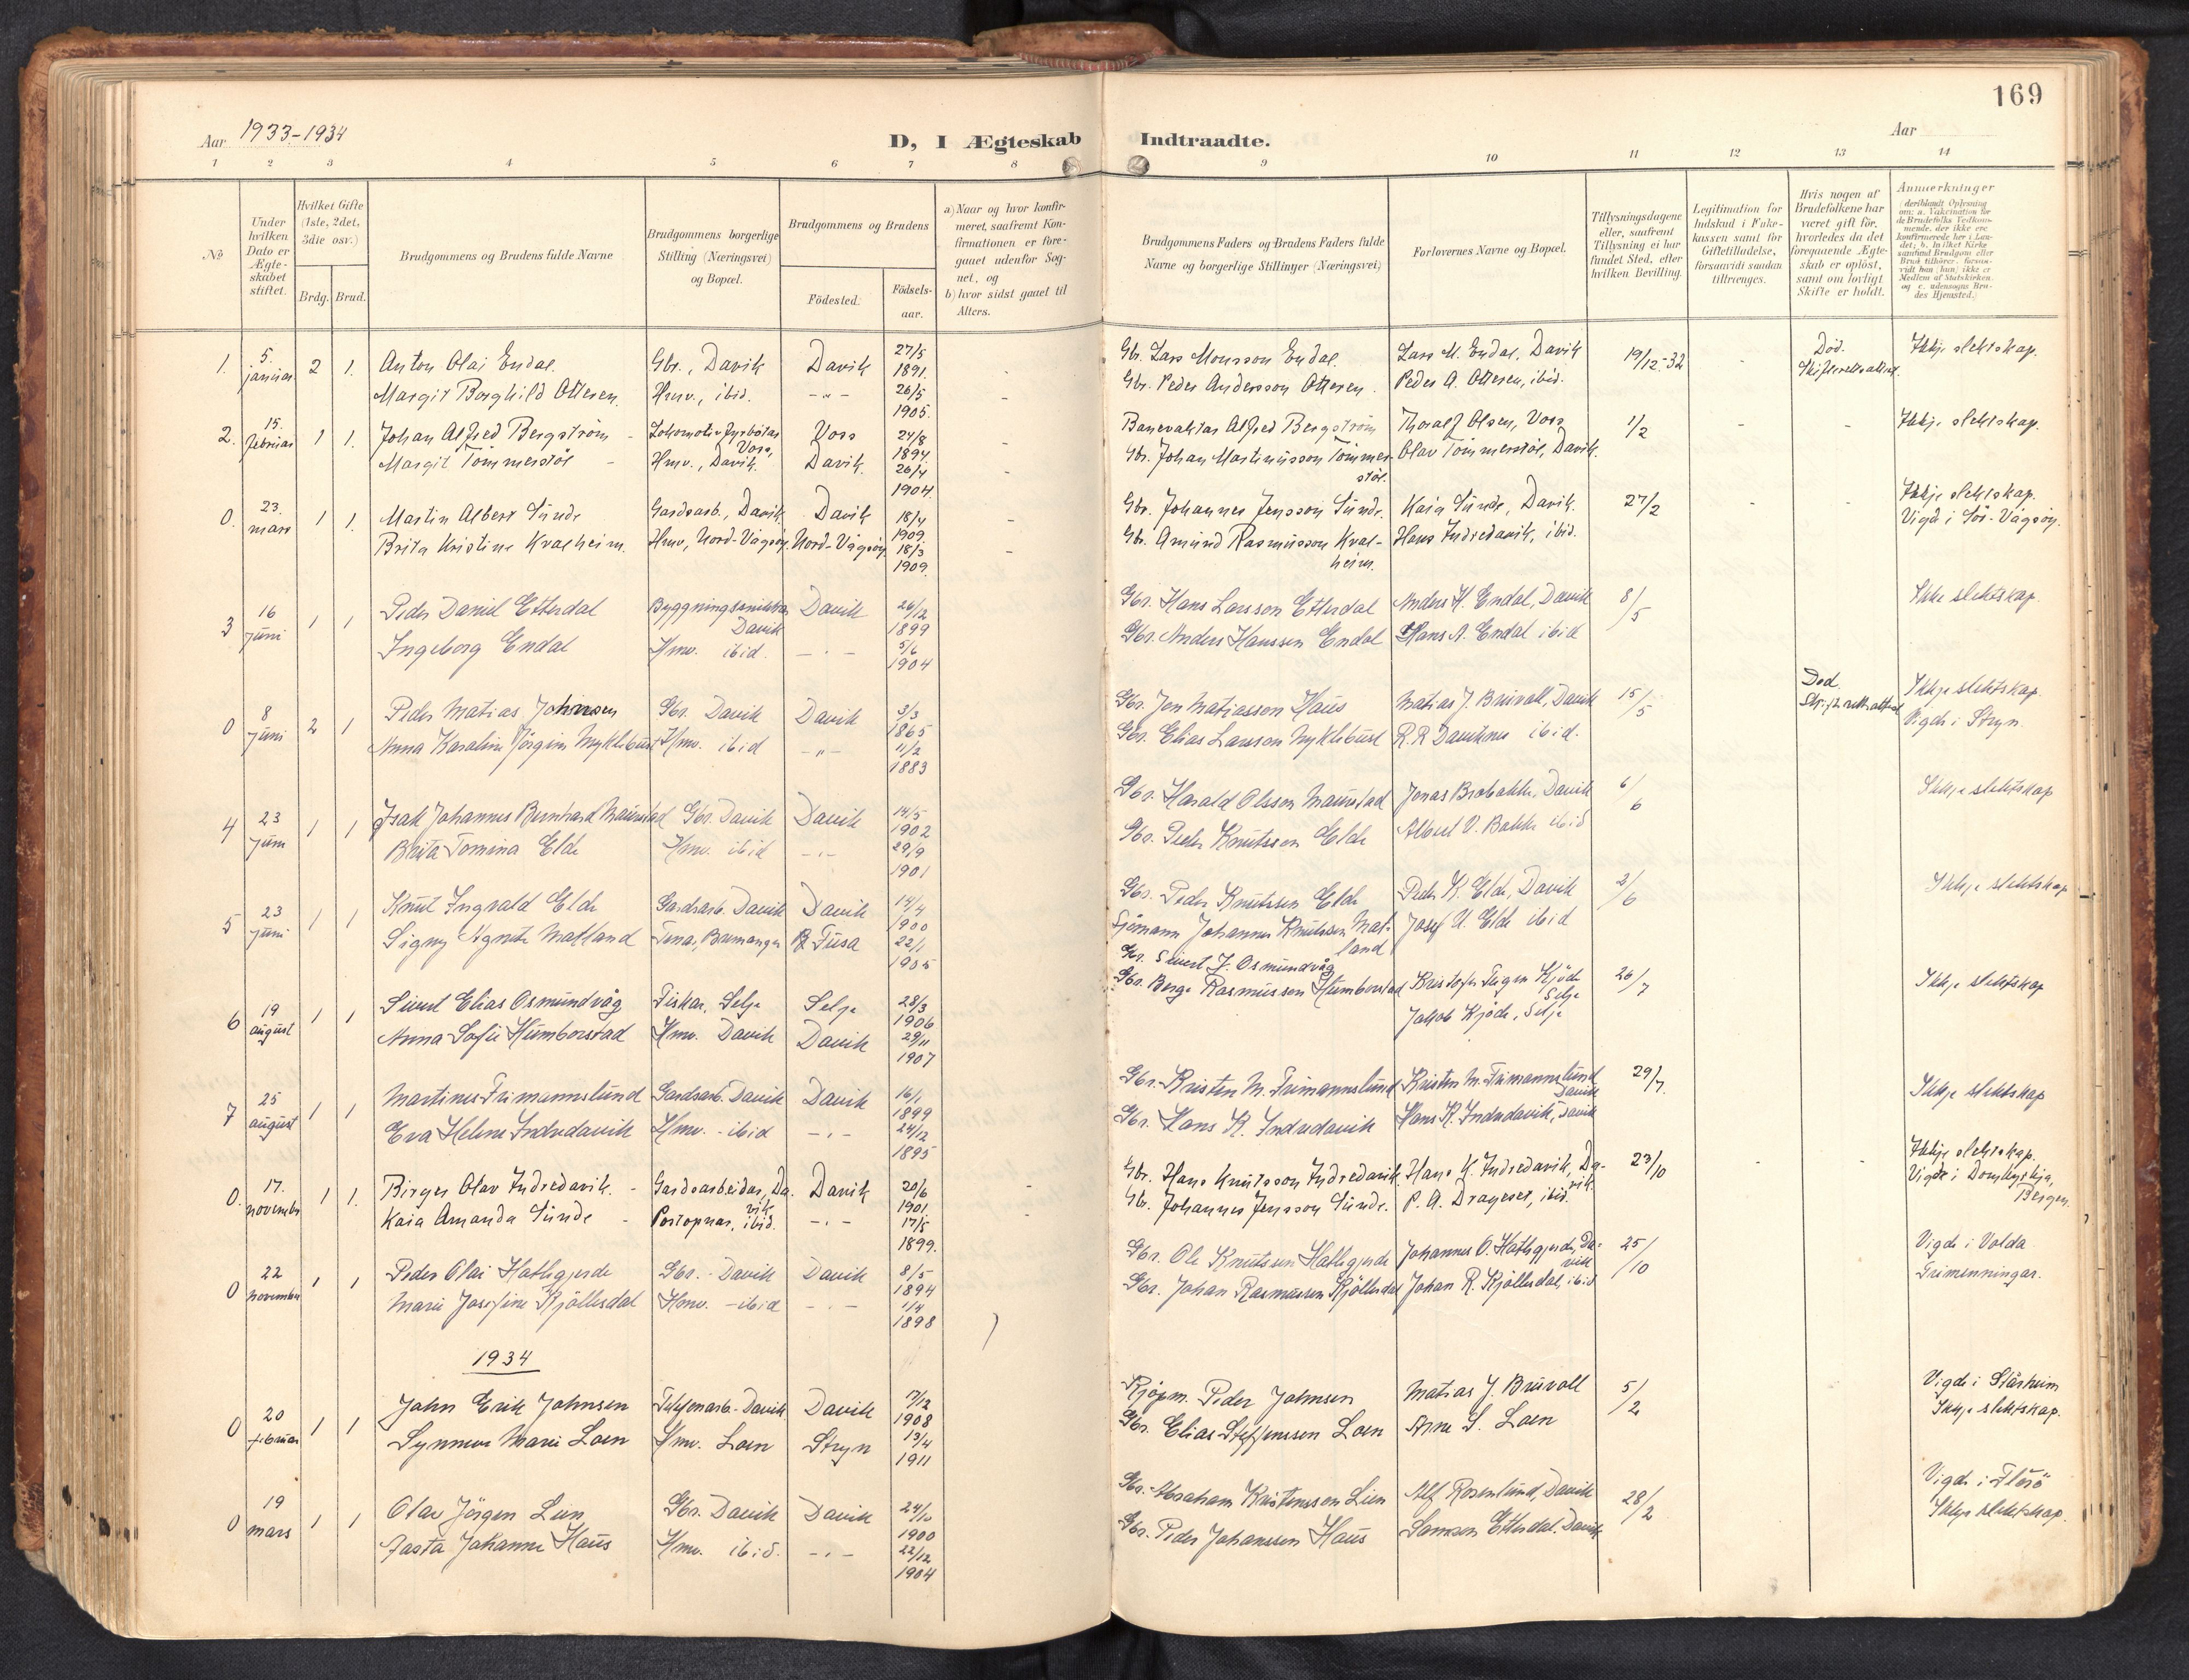 169
Aar 1933-1934
D, I Ægteskab Indtraadte.
Aar
1 2 3 4 5 6 7 8 9 10 11 12 13 14
No
Under hvilken Dato er Ægteskabet stiftet.
Hvilket Gifte (1ste, 2det, 3die osv.)
Brdg. Brud.
Brudgommens og Brudens fulde Navne
Brudgommens borgerlige Stilling (Næringsvei) og Bopæl.
Brudgommens og Brudens
Födested.
Födsels-aar.
a) Naar og hvor konfirmeret, saafremt Konfirmationen er foregaaet udenfor Sognet, og
b) hvor sidst gaaet til Alters.
Brudgommens Faders og Brudens Faders fulde Navne og borgerlige Stillinger (Næringsvei)
Forlovernes Navne og Bopæl.
Tillysningsdagene eller, saafremt Tillysning ei har fundet Sted, efter hvilken Bevilling.
Legitimation for Indskud i Enkekassen samt for Giftetilladelse, forsaavidt saadan tiltrænges.
Hvis nogen af Brudefolkene har været gift før, hvorledes da det foregaaende Ægteskab er oplöst, samt om lovligt Skifte er holdt.
Anmerkninger (deriblandt Oplysning om: a. Vakcination for de Brudefolks Vedkommende, der ikke ere konfirmerede her i Landet; b. hvilket Kirkesamfund Brudgom eller Brud tilhörer, forsaavidt han (hun) ikke er Medlem af Statskirken, og c. udensogns Brudes Hjemsted.)
1. 5. januar 2 1. Anton Olai Endal. Gbr., Davik Davik 27/5 1891. - Gbr. Lars Monsson Endal. Lars M. Endal, Davik 19/12-32 - Död. Skifterettsattest. Ikkje slektskap.
Margit Borghild Otteren. Husv., ibid. -"- 26/5 1905. - Gbr. Peder Andersson Otteren. Peder A. Otteren, ibid.
2. 15. februar 1 1. Johan Alfred Bergström - Lokomotivfyrbötar Voss, Voss 24/8 1894 Banevaktar Alfred Bergström Thoralf Olsen, Voss 1/2 - - Ikkje slektskap.
Margit Tömmerstöl - Husv., Davik. Davik. 26/4 1904. - Gbr. Johan Martinusson Tömmerstöl. Olav Tömmerstöl, Davik.
0. 23. mars 1 1. Martin Albert Sunde Gardsarb., Davik. Davik 18/4 1909. - Gbr. Johannes Jensson Sunde. Kaia Sunde, Davik. 27/2 - - Ikkje slektskap. Vigd i Sör-Vågsöy.
Brita Kristine Kvalheim. Husv, Nord-Vågsöy. Nord-Vågsöy. 18/3 1909. - Gbr. Amund Rasmusson Kvalheim. Hans Indredavik, ibid.
3 16 juni 1 1 Peder Daniel Etterdal Davik Davik 26/12 1899 Gbr. Hans Larsson Etterdal Anders H. Endal, Davik 8/5 Ikke slektskap.
Ingeborg Endal Hmv. ibid. -"- 5/6 1904 Gbr. Anders Hanssen Endal Hans A. Endal ibid
0 8 juni 2 1 Peder Matias Johnsen Gbr. Davik Davik 3/3 1865 Gbr. Jon Matiasson Haus Matias J. Bruvoll, Davik 15/5 Död. Skifterettsattest Ikkje slektskap. Vigde i Stryn
Anna Karoline Jörgine Myklebust Hmv. ibid -"- 11/2 1883 Gbr. Elias Larsson Myklebust R. R. Daviknes ibid.
4 23 juni 1 1 Isak Johannes Bernhard Maurstad Gbr. Davik Davik 14/5 1902 Gbr. Harald Olsson Maurstad Jonas Brobakke, Davik 6/6 Ikkje slektskap
Brita Tomina Elde Hmv. ibid -"- 29/9 1901 Gbr. Peder Knutssen Elde Albert V. Bakke ibid
5 23 juni 1 1 Knut Ingvald Elde Gardsarb. Davik Davik 14/4 1900 Gbr. Peder Knutssen Elde Peder K. Elde, Davik 2/6 Ikkje slektskap
Signy Agnete Matland Tena, Bremanger Fusa 22/1 1905 Sjömann Johannes Knutssen Matland Josef U. Elde ibid
6 19 august 1 1 Sivert Elias Osmundvåg Fiskar, Selje Selje 28/3 1906 Gbr. Sivert J. Osmundvåg Kjöde Selje 26/7 Ikkje slektskap
Anna Sofie Humborstad Hmv. Davik Davik 29/11 1907 Gbr. Berge Rasmussen Humborstad Jakob Kjöde, Selje
7 25 august 1 1 Martinus Frimannslund Gardsarb. Davik Davik 16/1 1899 Gbr. Kristen M. Frimannslund Kristen M. Frimannslund Davik 29/7. Ikkje slektskap
Eva Heline Indredavik Hmv. - ibid -"- 24/12 1895 Gbr. Hans K. Indredavik Hans K. Indredavik, Davik
0. 17. november 1 1. Birger Olav Indredavik. - Gardsarbeidar, Davik Davik 20/6 1901. - Gbr. Hans Knutsson Indredavik. Hans K. Indredavik, Davik. 23/10 - - Ikkje slektskap. Vigde i Domkyrkja, Bergen.
Kaia Amanda Sunde - Postopnar, ibid. -"- 17/5 1899. - Gbr. Johannes Jensson Sunde. P. A. Drageset, ibid.
0 22 november 1 1 Peder Olai Hatlegjerde Gbr. - Davik Davik 8/5 1894 Gbr. Ole Knutssen Hatlegjerde Johannes O. Hatlegjerde, Davik 25/10 Vigde i Volda Trimenningar.
Marie Josefine Kjöllesdal Hmv. - ibid -"- 1/4 1898 Gbr. Johan Rasmussen Kjöllesdal Johan R. Kjöllesdal, ibid
1934
0 20 februar 1 1 John Erik Johnsen Telefonarb. Davik Davik 7/12 1908 Kjöpm. Peder Johnsen Matias J. Bruvoll 5/2 Vigde i Stårheim Ikkje slektskap.
Synnöve Marie Loen Hmv. Loen Stryn 13/4 1911 Gbr. Elias Steffenssen Loen Arne S. Loen
0 19 mars 1 1 Olav Jörgen Lien Gbr. Davik Davik 24/10 1900 Gbr. Abraham Kristenssen Lien Alf Rosenlund, Davik 28/2 Vigde i Florö Ikkje slektskap.
Jasta Johanne Haus Hmv. ibid. -"- 22/12 1904 Gbr. Peder Johanssen Haus Samson Etterdal Davik